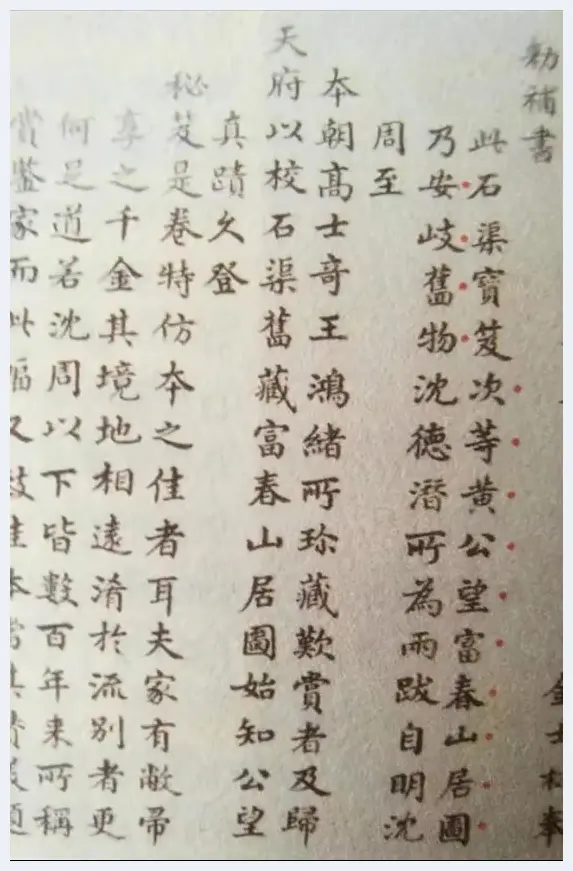 金士松奉
勅補書
此石渠寶笈次等黃公望富春山居圖
乃安岐舊物沈德潛所為兩跋自明沈
周至
本朝高士奇王鴻緒所珍藏歎賞者及歸
天府以校石渠舊藏富春山居圖始知公望
真蹟久登
秘笈是卷特仿本之佳者耳夫家有敝帚
享之千金其境地相遠淆於流別者更
何足道若沈周以下皆數百年來所稱
賞鑒家而此幅又